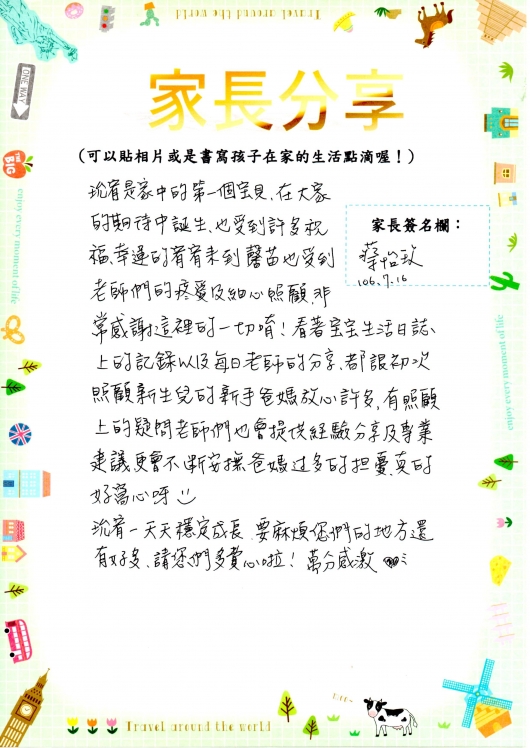 Travel around the world
ONE WAY
THE BIG
家長分享
(可以貼相片或是書寫孩子在家的生活點滴喔！)
enjoy every moment of life
家長簽名欄：
蔡怡玫
106.7.16
沇宥是家中的第一個宝貝、在大家
的期待中誕生、也受到許多祝
福、幸運的宥宥來到馨苗也受到
老師們的疼愛及細心照顧、非
常感謝這裡的一切唷！看著宝宝生活日誌、
上的記錄以及每日老師的分享、都讓初次
照顧新生兒的新手爸媽放心許多、有照顧
上的疑問老師們也會提供經驗分享及專業
建議、更會不斷安撫爸媽過多的担憂、真的
好窩心呀
沇宥一天天穩定成長、要麻煩您們的地方還
有好多、請您們多費心啦！萬分感激
enjoy every moment of life
moo~
Travel around the world